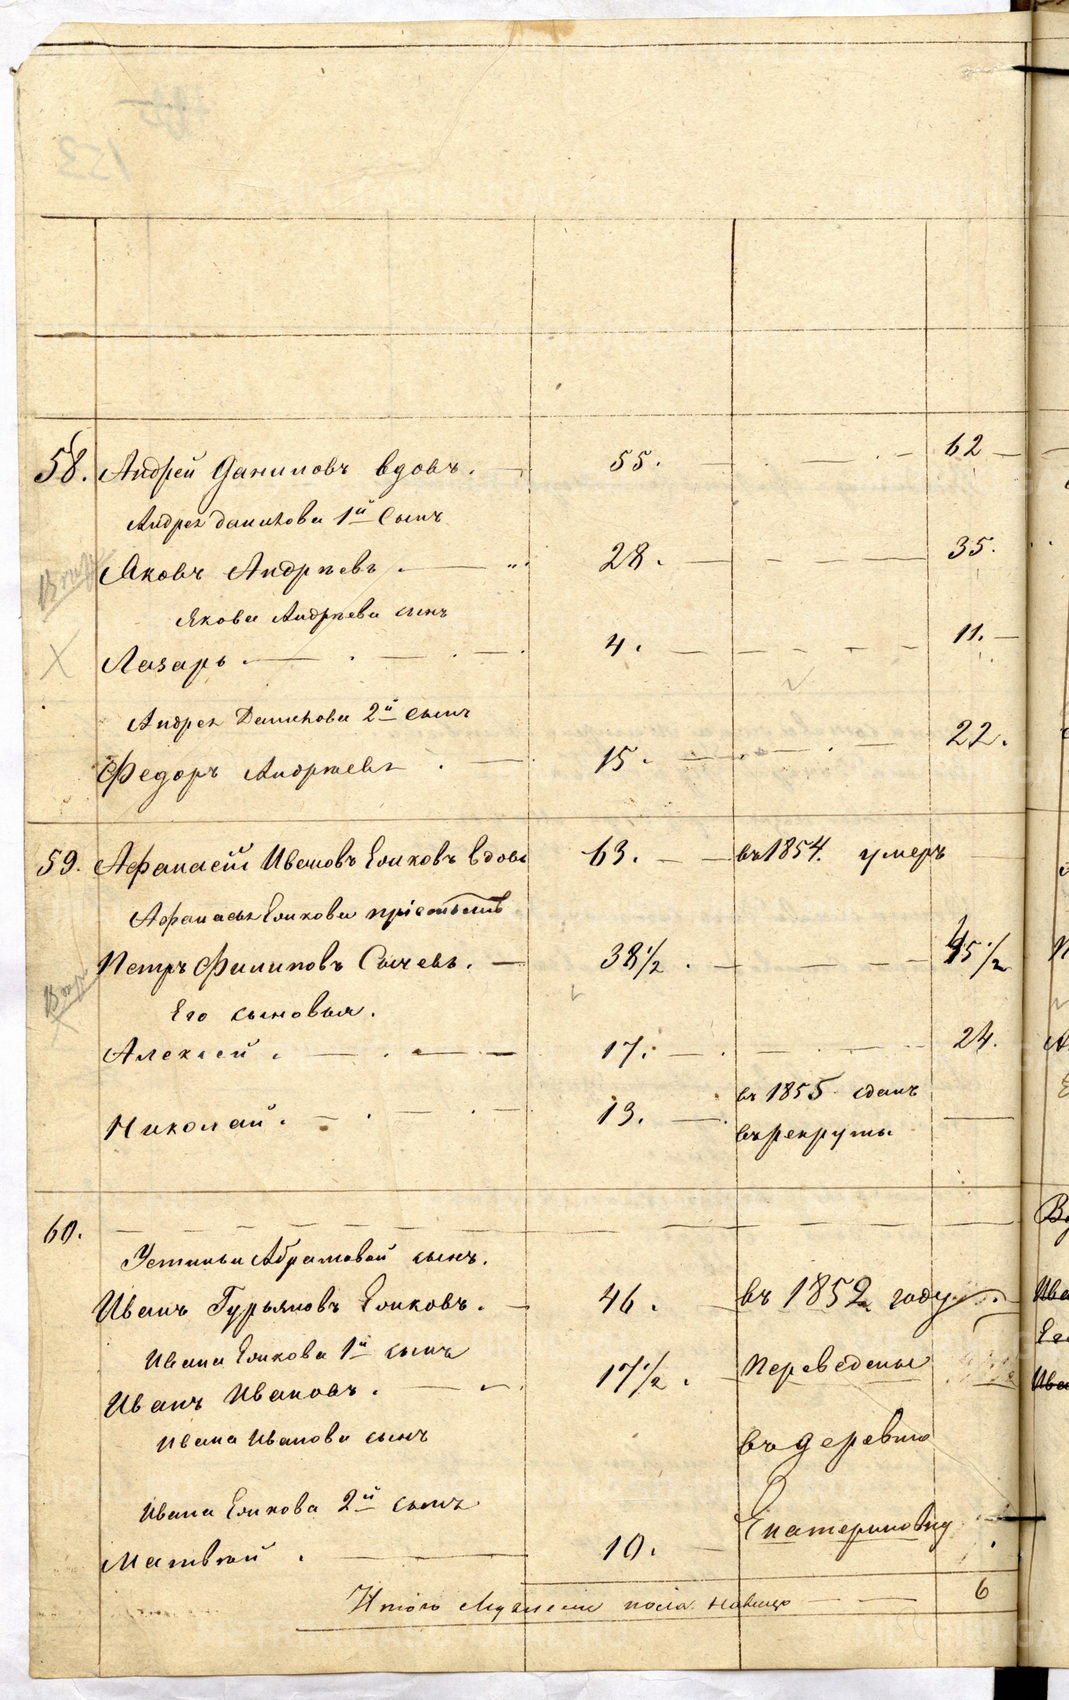 58. Андрей Даниловъ вдовъ. 55. 62
Андрея Данилова 1й сынъ
Яковъ Андреевъ 28. 35.
Якова Андреева сынъ
Лазарь. 4. 11.
Андрея Данилова 2й сынъ
Федоръ Андреевъ 15. 22.
59. Афанасій Ивановъ Еликовъ вдовъ 63. въ 1854. умеръ
Афанасья Еликова пріемышъ
Петръ Филиповъ Сычевъ. 38 1/2. 45 1/2
Его сыновья.
Алексей. 17. 24.
Николай. 13. въ 1855 сданъ
въ рекруты
60.
Устиньи Абрамовой сынъ.
Иванъ Гурьяновъ Еликовъ. 46. въ 1852 году
Ивана Еликова 1й сынъ
Иванъ Ивановъ. 17 1/2. переведены
Ивана Иванова сынъ
въ деревню
Ивана Еликова 2й сынъ
Екатериновку
Матвей. 10.
Итого Мужеска пола наличо 6